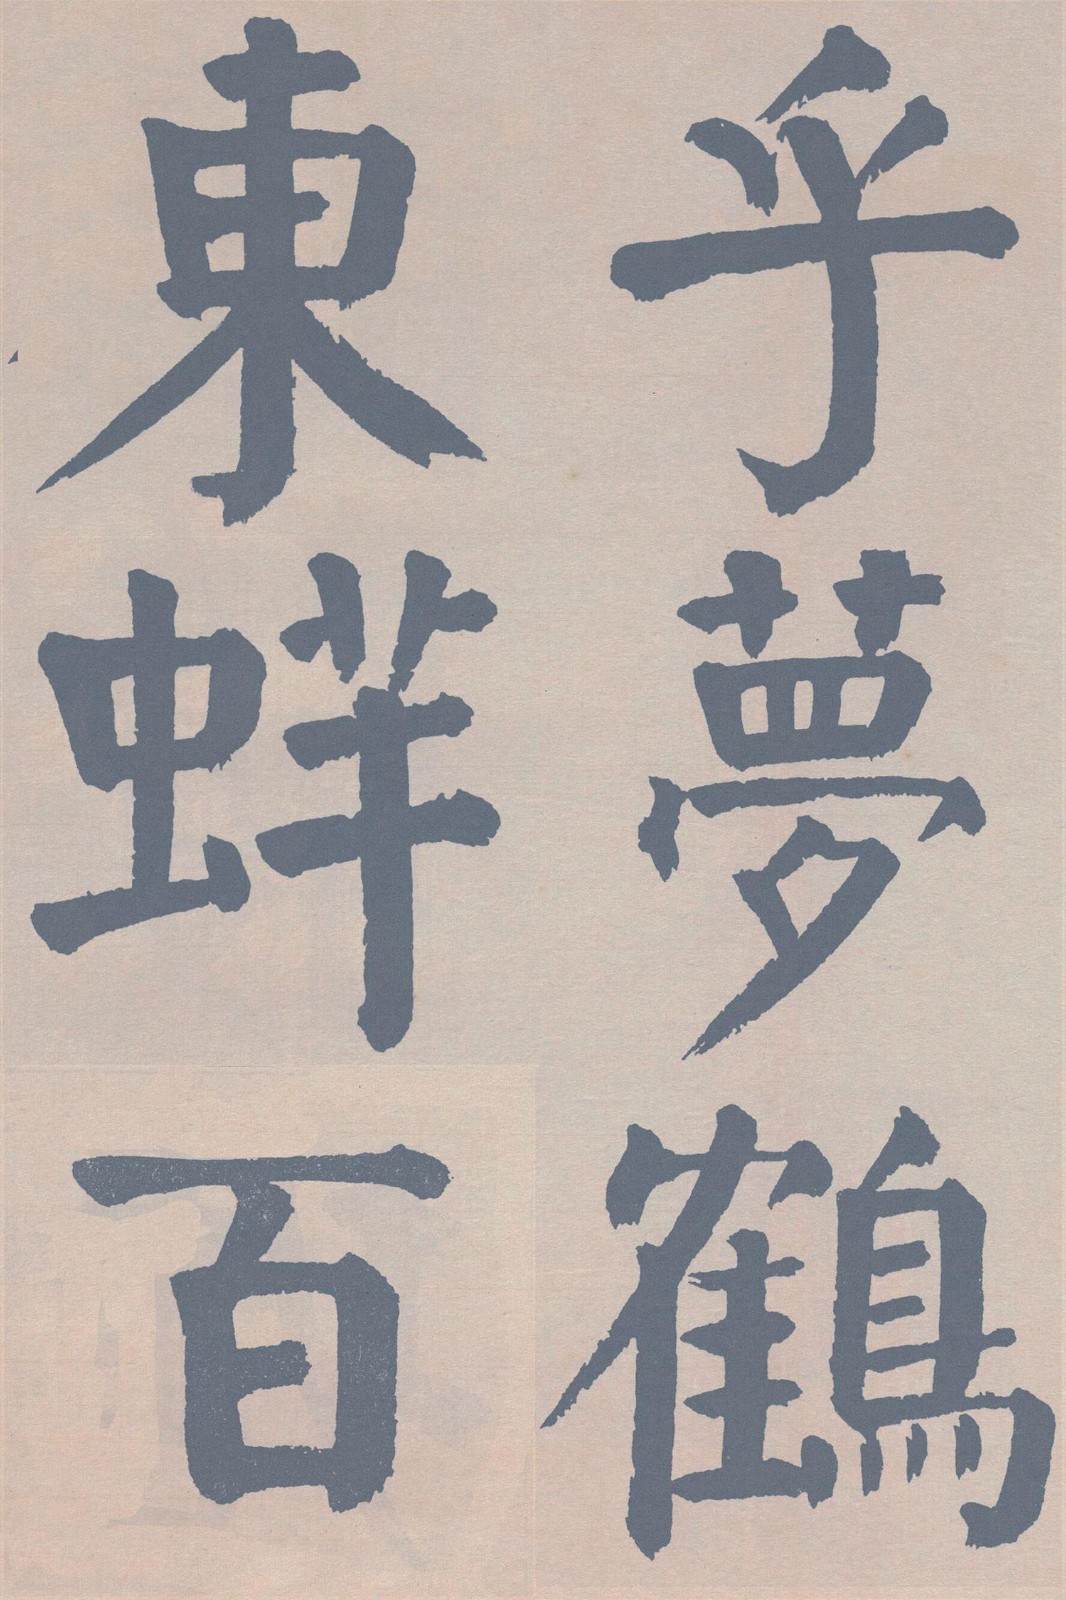 乎夢鶴
東蛘百